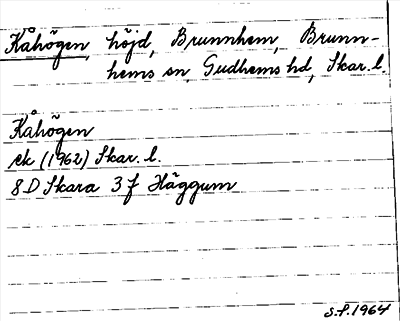 Kåhögen, höjd, Brunnhem, Brunn-
hems sn, Gudhems hd, Skar. l.
Kåhögen
ek (1962) Skar. l.
8 D Skara 3 f Häggum
S.F. 1964